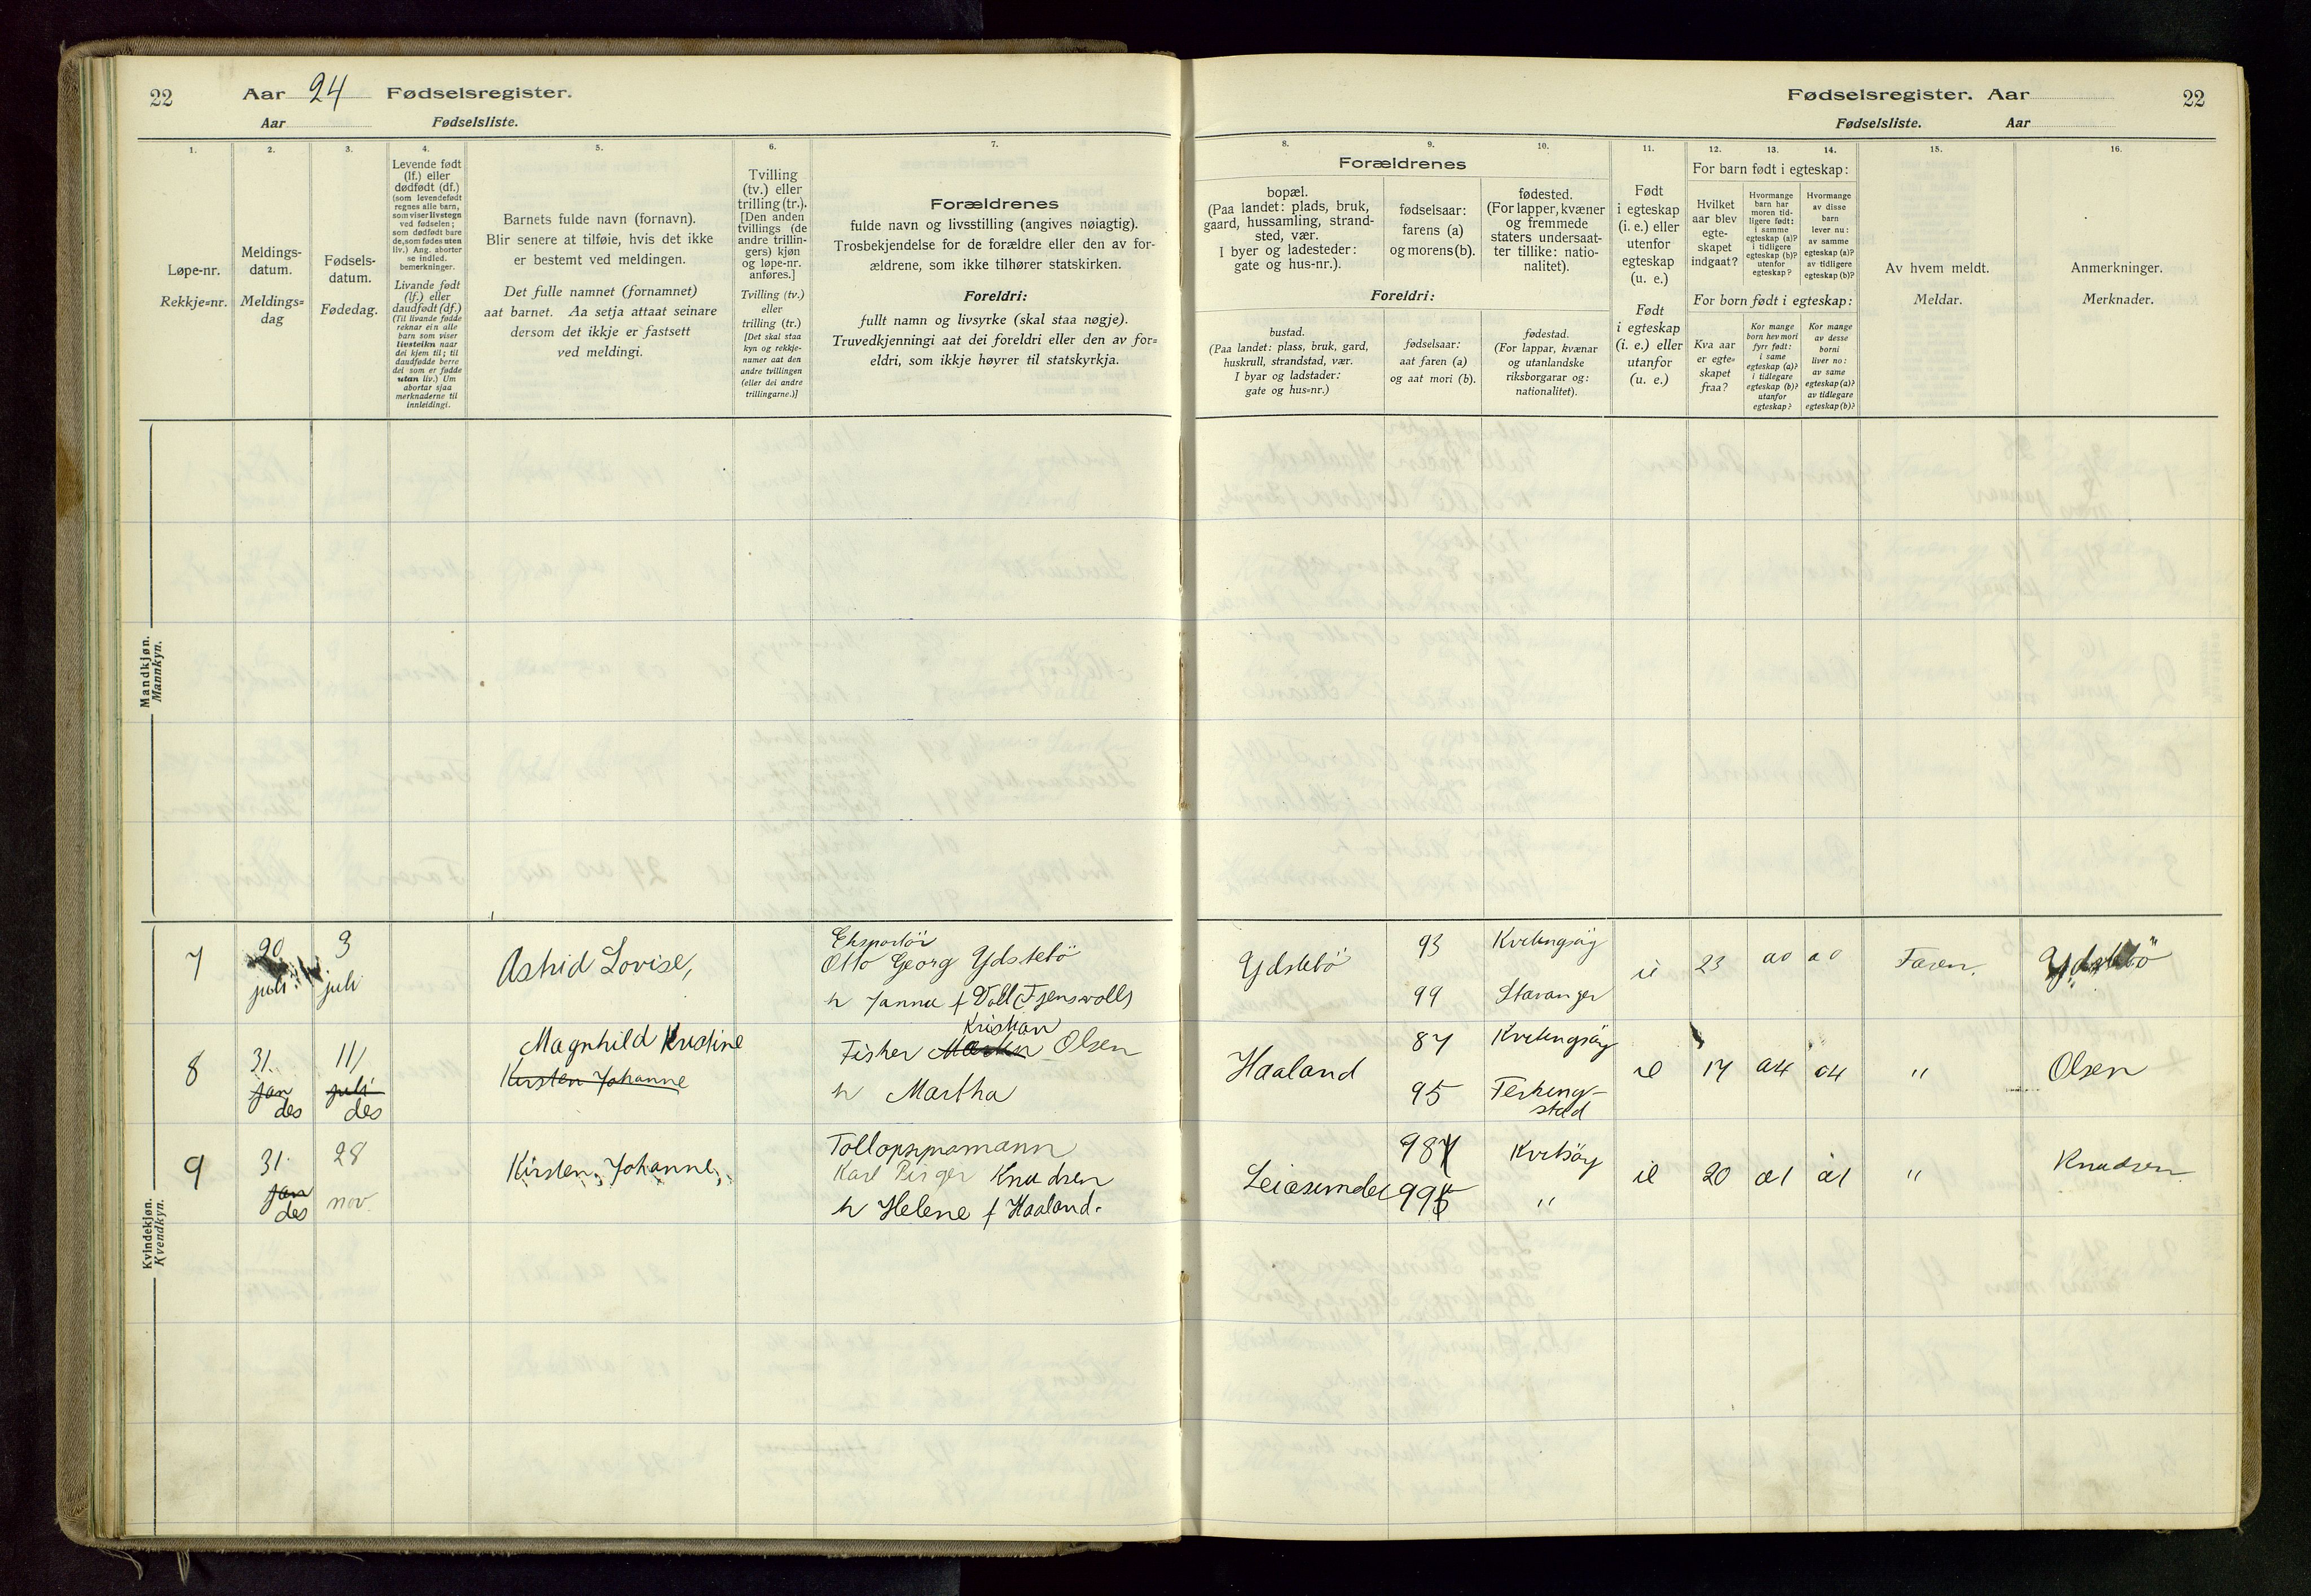 22 Aar 24 Fødselsregister.
Aar Fødselsliste.
1. 2. 3. 4. 5. 6. 7.
Løpe-nr.
Rekkje-nr.
Meldings-
datum.
Meldings-
dag
Fødsels-
datum.
Fødedag.
Levende født
(lf.) eller
dødfødt (df.)
(som levendefødt
regnes alle barn,
som viser livstegn
ved fødselen;
som dødfødt bare
de, som fødes uten
liv.) Ang. aborter
se indled.
bemerkninger.
Livande født
(lf.) eller
daudfødt (df.)
(Til livande fødde
reknar ein alle
barn som viser
livsteikn naar
dei kjem til; til
daudfødde berre
dei som er fødde
utan liv.) Um
abortar sjaa
merknaderne til
innleidingi.
Barnets fulde navn (fornavn).
Blir senere at tilføie, hvis det ikke
er bestemt ved meldingen.
Det fulle namnet (fornamnet)
aat barnet. Aa setja attaat seinare
dersom det ikkje er fastsett
ved meldingi.
Tvilling
(tv.) eller
trilling (tr.).
[Den anden
tvillings (de
andre trillin-
gers) kjøn
og løpe-nr.
anføres.]
Tvilling (tv.)
eller
trilling (tr.)
[Det skal staa
kyn og rekkje-
numer aat den
andre tvillingen
(eller dei andre
trillingarne.)]
Forældrenes
fulde navn og livsstilling (angives nøiagtig).
Trosbekjendelse for de forældre eller den av for-
ældrene, som ikke tilhører statskirken.
Foreldri:
fullt namn og livsyrke (skal staa nøgje).
Truvedkjenningi aat dei foreldri eller den av for-
eldri, som ikkje høyrer til statskyrkja.
Mandkjøn.
Mannkyn.
7 20 juli 3 juli Astrid Lovise, Eksportör
Otto Georg Ydstebö
h Janna f Voll
8 31. jan des 11/ juli des Magnhild Kristine
Kirsten Johanne
Fisker Kristian Olsen
h Martha
9 31. jan des 28 nov. Kirsten, Johanne,
Karl Birger Knudsen
h Helene f Haaland.
Kvindekjøn.
Kvendkyn.
Fødselsregister. Aar 22
Fødselsliste. Aar
8. 9. 10. 11. 12. 13. 14. 15. 16.
Forældrenes
bopæl.
(Paa landet: plads, bruk,
gaard, hussamling, strand-
sted, vær.
I byer og ladesteder:
gate og hus-nr.).
fødselsaar:
farens (a)
og morens (b).
fødested.
(For lapper, kvæner
og fremmede
staters undersaat-
ter tillike: natio-
nalitet).
Foreldri:
bustad.
(Paa landet: plass, bruk, gard,
huskrull, strandstad, vær.
I byar og ladstader:
gate og hus-nr.)
fødselsaar:
aat faren (a)
og aat mori (b).
fødestad.
(For lappar, kvænar
og utanlandske
riksborgarar og:
nationalitet).
Født
i egteskap
(i. e.) eller
utenfor
egteskap
(u. e.)
Født
i egteskap
(i. e.) eller
utanfor
(u. e.)
For barn født i egteskap:
Hvilket
aar blev
egte-
skapet
indgaat?
Hvormange
barn har
moren tid-
ligere født:
i samme
egteskap (a)?
i tidligere
egteskap (b)?
utenfor
egteskap?
Hvormange
av disse
barn
lever nu:
av samme
egteskap (a)?
av tidligere
egteskap (b)?
For born født i egteskap:
Kva aar
er egte-
skapet
fraa?
Kor mange
born hev mori
fyrr født:
i same
egteskap (a)?
i tidlegare
egteskap (b)?
utanfor
egteskap?
Kor mange
av desse
borni
liver no:
av same
egteskap (a)?
av tidlegare
egteskap (b)?
Av hvem meldt.
Meldar.
Anmerkninger.
Merknader.
Ydstebö 93 Kvitingsöy ie 23 a0 a0 Faren. Ydstebö
99 Stavanger
Haaland 87 Kvitingsöy ie 17 a4 a4 " Olsen
95 Ferkingstad
Leiasundet 987 Kvitsöy ie 20 a1 a1 " Knudsen
995 "